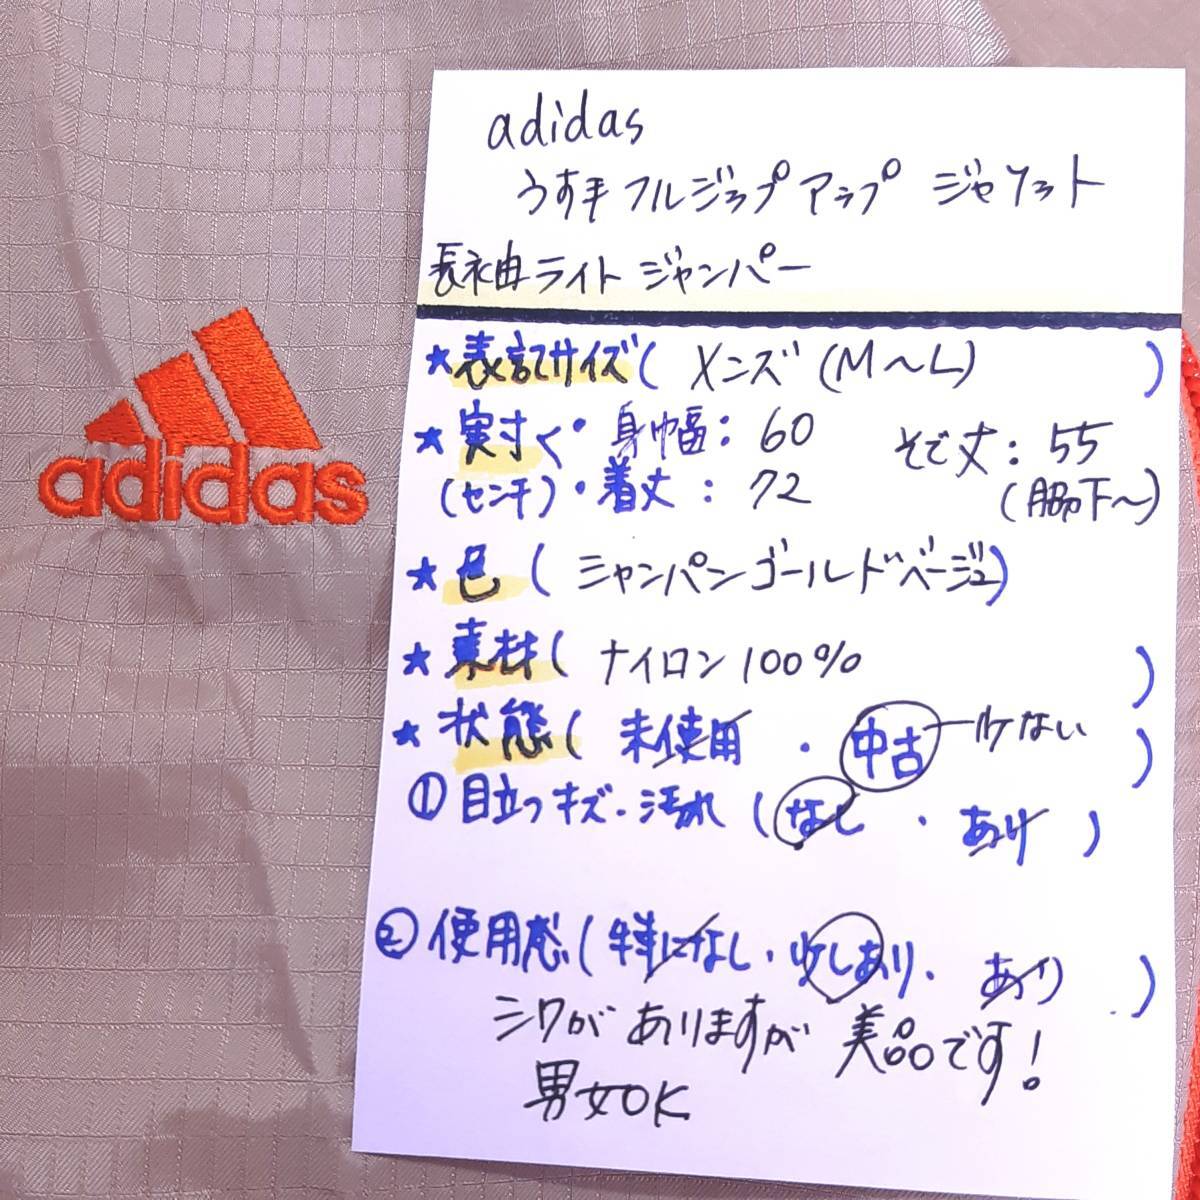 adidas
adidas
うす手フルジップアップ ジャケット
長袖ライト ジャンパー
★表記サイズ( メンズ(M〜L) )
★実寸く・身巾幅: 60 そで丈: 55
(センチ)・着丈: 72 (脇下〜)
★色( シャンパンゴールドベージュ)
★素材( ナイロン100% )
★状態( 未使用 ・ 中古 )
①目立つキズ・汚れ( なし ・ あり )
②使用感( 特になし・少しあり・ あり )
シワがありますが 美品です!
男女OK